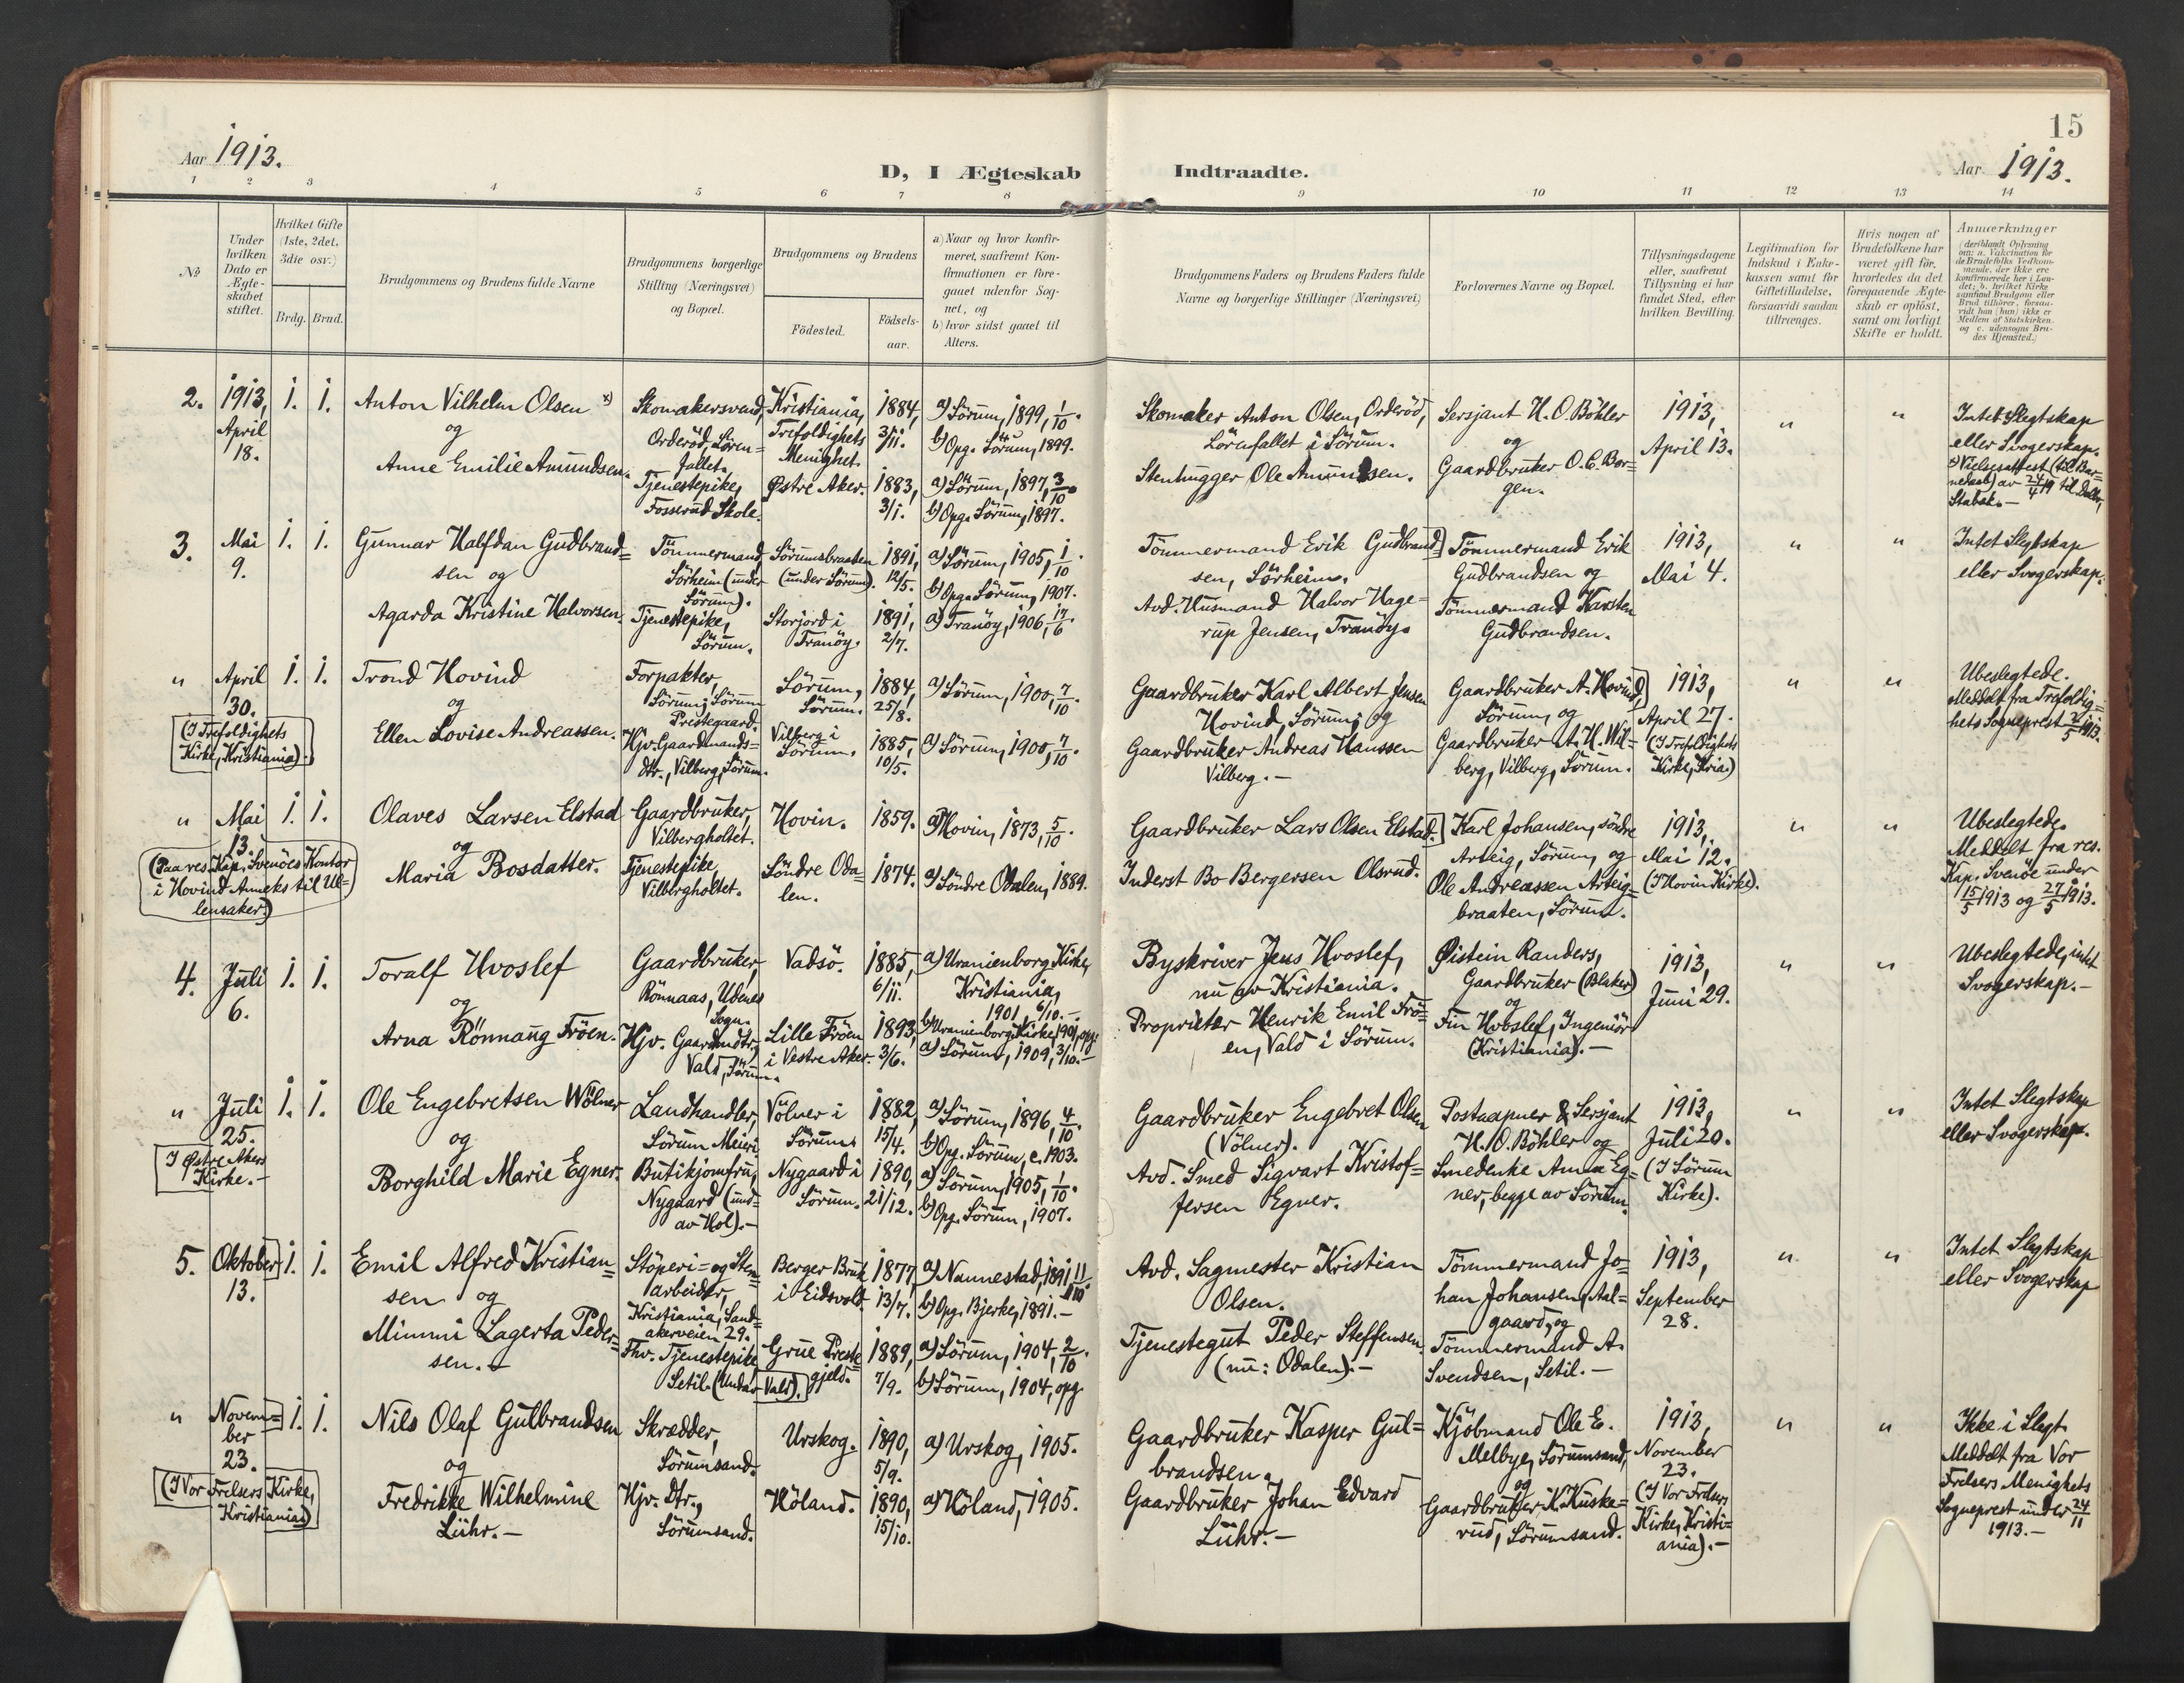 15
Aar 1913.
Aar 1913.
D, I Ægteskab Indtraadte.
1 2 3 4 5 6 7 8 9 10 11 12 13 14
No
Under hvilken Dato er Ægteskabet stiftet.
Hvilket Gifte (1ste, 2det, 3die osv.)
Brdg. Brud.
Brudgommens og Brudens fulde Navne
Brudgommens borgerlige Stilling (Næringsvei) og Bopæl.
Brudgommens og Brudens
Födested.
Födsels-aar.
a) Naar og hvor konfirmeret, saafremt Konfirmationen er foregaaet udenfor Sognet, og
b) hvor sidst gaaet til Alters.
Brudgommens Faders og Brudens Faders fulde Navne og borgerlige Stillinger (Næringsvei)
Forlovernes Navne og Bopæl.
Tillysningsdagene eller, saafremt Tillysning ei har fundet Sted, efter hvilken Bevilling.
Legitimation for Indskud i Enkekassen samt for Giftetilladelse, forsaavidt saadan tiltrænges.
Hvis nogen af Brudefolkene har været gift för, hvorledes da det foregaaende Ægteskab er oplöst, samt om lovligt Skifte er holdt.
Anmærkninger
(deriblandt Oplysning om: a. Vakcination for de Brudefolks Vedkommende, der ikke ere konfirmerede her i Landet; b. hvilket Kirkesamfund Brudgom eller Brud tilhörer, forsaavidt han (hun) ikke er Medlem af Statskirken, og c. udensogns Brudes Hjemsted.)
2. 1913, April 18. 1. 1.
Anton Vilhelm Olsen x)
og
Anne Emilie Amundsen.
Skomakersvend, Orderöd, Lörenfallet.
Tjenestepike, Fosserud Skole.
Kristiania, Trefoldighets Menighet.
Østre Aker.
1884, 3/11.
1883, 3/1.
a) Sörum, 1899, 1/10.
b) Opg. Sörum, 1899.
a) Sörum, 1897, 3/10.
b) Opg. Sörum, 1897.
Skomaker Anton Olsen, Orderöd, Lörenfallet i Sörum.
Stenhugger Ole Amundsen.
Sersjant H. O. Böhler
og
Gaardbruker O. C. Borgen.
1913, April 13.
" "
Intet Slegtskap eller Svogerskap.
x) Vielsesattest (til Barnedaab) av 24/4 19 til
Stabæk.-
3. Mai 9. 1. 1.
Gunnar Halfdan Gudbrandsen og
Agarda Kristine Halvorsen.
Tömmermand, Sörheim (under Sörum).
Tjenestepike, Sörum.
Sörumsbraaten (under Sörum).
Storjord i Tranöy.
1891, 12/5.
1891, 2/7.
a) Sörum, 1905, 1/10.
b) Opg. Sörum, 1907.
a) Tranöy, 1906, 17/6.
Tömmermand Erik Gudbrandsen, Sörheim.
Avd. Husmand Halvor Hagerup Jensen, Tranöy.
Tömmermand Erik Gudbrandsen og
Tömmermand Karsten Gudbrandsen.
1913, Mai 4.
" "
Intet Slegtskap eller Svogerskap.
" April 30. 1. 1.
(I Trefoldighets Kirke, Kristiania).
Trond Hovind
og
Ellen Lovise Andreassen.
Forpakter, Sörum, Sörum Prestegaard.
Hjv. Gaardmandsdtr., Vilberg, Sörum.
Sörum, Sörum.
Vilberg i Sörum.
1884, 25/8.
1885, 10/5.
a) Sörum, 1900, 7/10.
a) Sörum, 1900, 7/10.
Gaardbruker Karl Albert Jensen Hovind, Sörum; og
Gaardbruker Andreas Hanssen Vilberg.-
Gaardbruker A. Hovind, Sörum, og
Gaardbruker A. H. Vilberg, Vilberg, Sörum.
1913, April 27.
(I Trefoldighets Kirke, Kria.)
" "
Ubeslegtede.
Meddelt fra Trefoldighets Sogneprest 2/5 1913.
" Mai 13. 1. 1.
(Paa res. Kap. Svenöes Kontor i Hovind Anneks til Ullensaker.)
Olaves Larsen Elstad
og
Maria Bosdatter.
Gaardbruker, Vilbergholtet.
Tjenestepike, Vilbergholtet.
Hovin.
Söndre Odalen.
1859.
1874.
a) Hovin, 1873, 5/10.
a) Söndre Odalen, 1889.
Gaardbruker Lars Olsen Elstad.
Inderst Bo Bergersen Olsrud.
Karl Johansen, söndre Arteig, Sörum, og
Ole Andreassen Arteigbraaten, Sörum.
1913, Mai 12.
(I Hovin Kirke).
" "
Ubeslegtede.
Meddelt fra res. Kap. Svenöe under 15/5 1913 og 27/5 1913.
4. Juli 6. 1. 1.
Toralf Hvoslef
og
Arna Rönnaug Fröen.
Gaardbruker, Rönnaas, Udenes Sogn.
Hjv. Gaarmdtr, Vald, Sörum.
Vadsö.
Lille Fröen i Vestre Aker.
1885, 6/11.
1893, 3/6.
a) Uranienborg Kirke, Kristiania, 1901, 6/10.-
b) Uranienborg Kirke, 1901, opg.
a) Sörum, 1909, 3/10.-
Byskriver Jens Hvoslef, nu av Kristiania.
Proprietær Henrik Emil Fröen, Vald i Sörum.
Øistein Randers, Gaardbruker (Blaker)
og
Fin Hvoslef, Ingeniör (Kristiania).-
1913, Juni 29.
" "
Ubeslegtede, intet Svogerskap.-
" Juli 25. 1. 1.
I Østre Akers Kirke.-
Ole Engebretsen Wölner
og
Borghild Marie Egner.
Landhandler, Sörum Meieri.
Butikjomfru, Nygaard (und. av Hol).-
Völner i Sörum.
Nygaard i Sörum.
1882, 15/4.
1890, 21/12.
a) Sörum, 1896, 4/10.
b) Op. Sörum, c. 1903.
a) Sörum, 1905, 1/10.
b) Opg. Sörum, 1907.
Gaardbruker Engebret Olsen (Völner).
Avd. Smed Sigvart Kristoffersen Egner.
Postaapner & Sersjant H. O. Böhler og
Smedenke Anna Egner, begge av Sörum.
1913, Juli 20.
(I Sörum Kirke).
" "
Intet Slegtskap eller Svogerskap.
5. Oktober 13. 1. 1.
Emil Alfred Kristiansen og
Mimmi Lagerta Pedersen.-
Stöperi- og Stenarbeider, Kristiania, Sandakerveien 29.
Fhv. Tjenestepike, Setil (Under Vald).
Berger Bruk i Eidsvold.
Grue Prestegjeld.
1877, 13/7.
1889, 7/9.
a) Nannestad, 1891, 11/10.
b) Opg. Bjerke, 1891.-
a) Sörum, 1904, 2/10.
b) Sörum, 1904, opg.
Avd. Sagmester Kristian Olsen.
Tjenestegut Peder Steffensen. (nu: Odalen).-
Tömmermand Johan Johansen, Aalgaard, og
Tömmermand A. Svendsen, Setil.-
1913, September 28.
" "
Intet Slegtskap eller Svogerskap
" November 23. 1. 1.
(I Vor Frelsers Kirke, Kristiania)
Nils Olaf Gulbrandsen
og
Fredrikke Wilhelmine Lühr.-
Skrædder, Sörumsand.
Hjv. Dtr., Sörumsand.
Urskog.
Höland.
1890, 5/9.
1890, 15/10.
a) Urskog, 1905.
a) Höland, 1905.
Gaardbruker Kasper Gulbrandsen.
Gaardbruker Johan Edvard Lühr.-
Kjöbmand Ole E. Melbye, Sörumsand,
og
Gaardbruker K. Kuskerud, Sörumsand.
1913, November 23.
(I Vor Frelsers Kirke, Kristiania).-
" "
Ikke i Slegt.
Meddelt fra Vor Frelsers Menighets Sogneprest under 24/11 1913.-